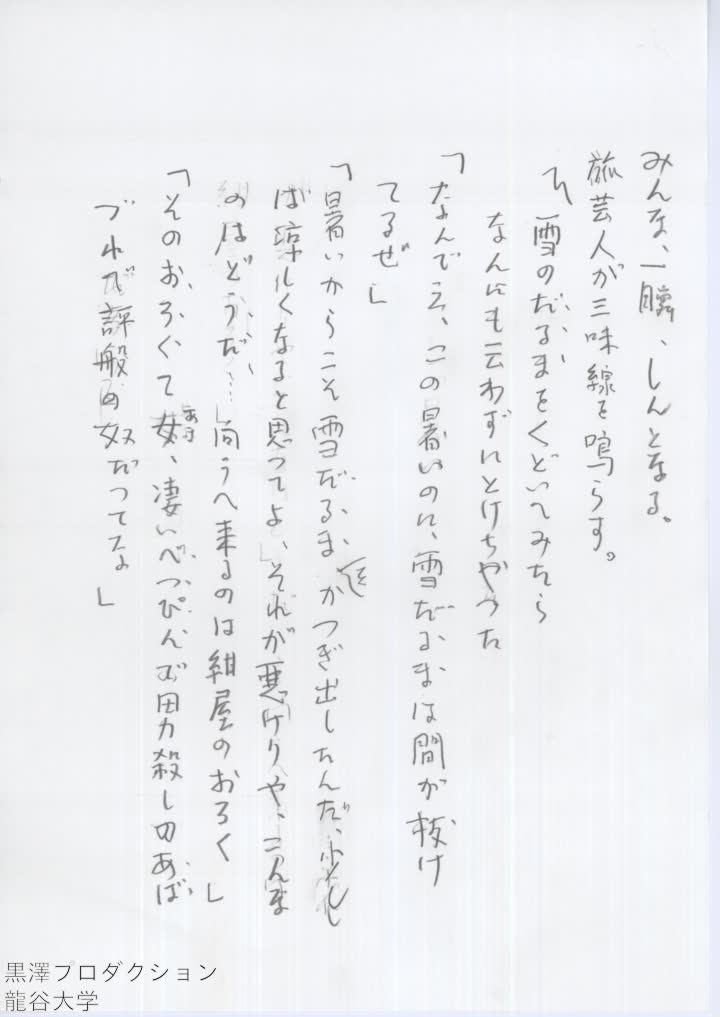 みんな、一瞬、しんとなる。
旅芸人が三味線を鳴らす。
〽雪のだるまをくどいてみたら
なんにも云わずにとけちやつた
「なんでえ、この暑いのに、雪だるまは間が抜け
てるぜ」
「暑いからこそ雪だるまを かつぎ出したんだ、少しし
ば涼しくなると思つてよ、それが悪けりや、こんな
のはどうだ……向うへ来るのは紺屋のおろく」
「そのおろくて女、凄いべつぴんで男殺しのあば
ずれで評般の奴だつてな」
あま
黒澤プロダクション
龍谷大学